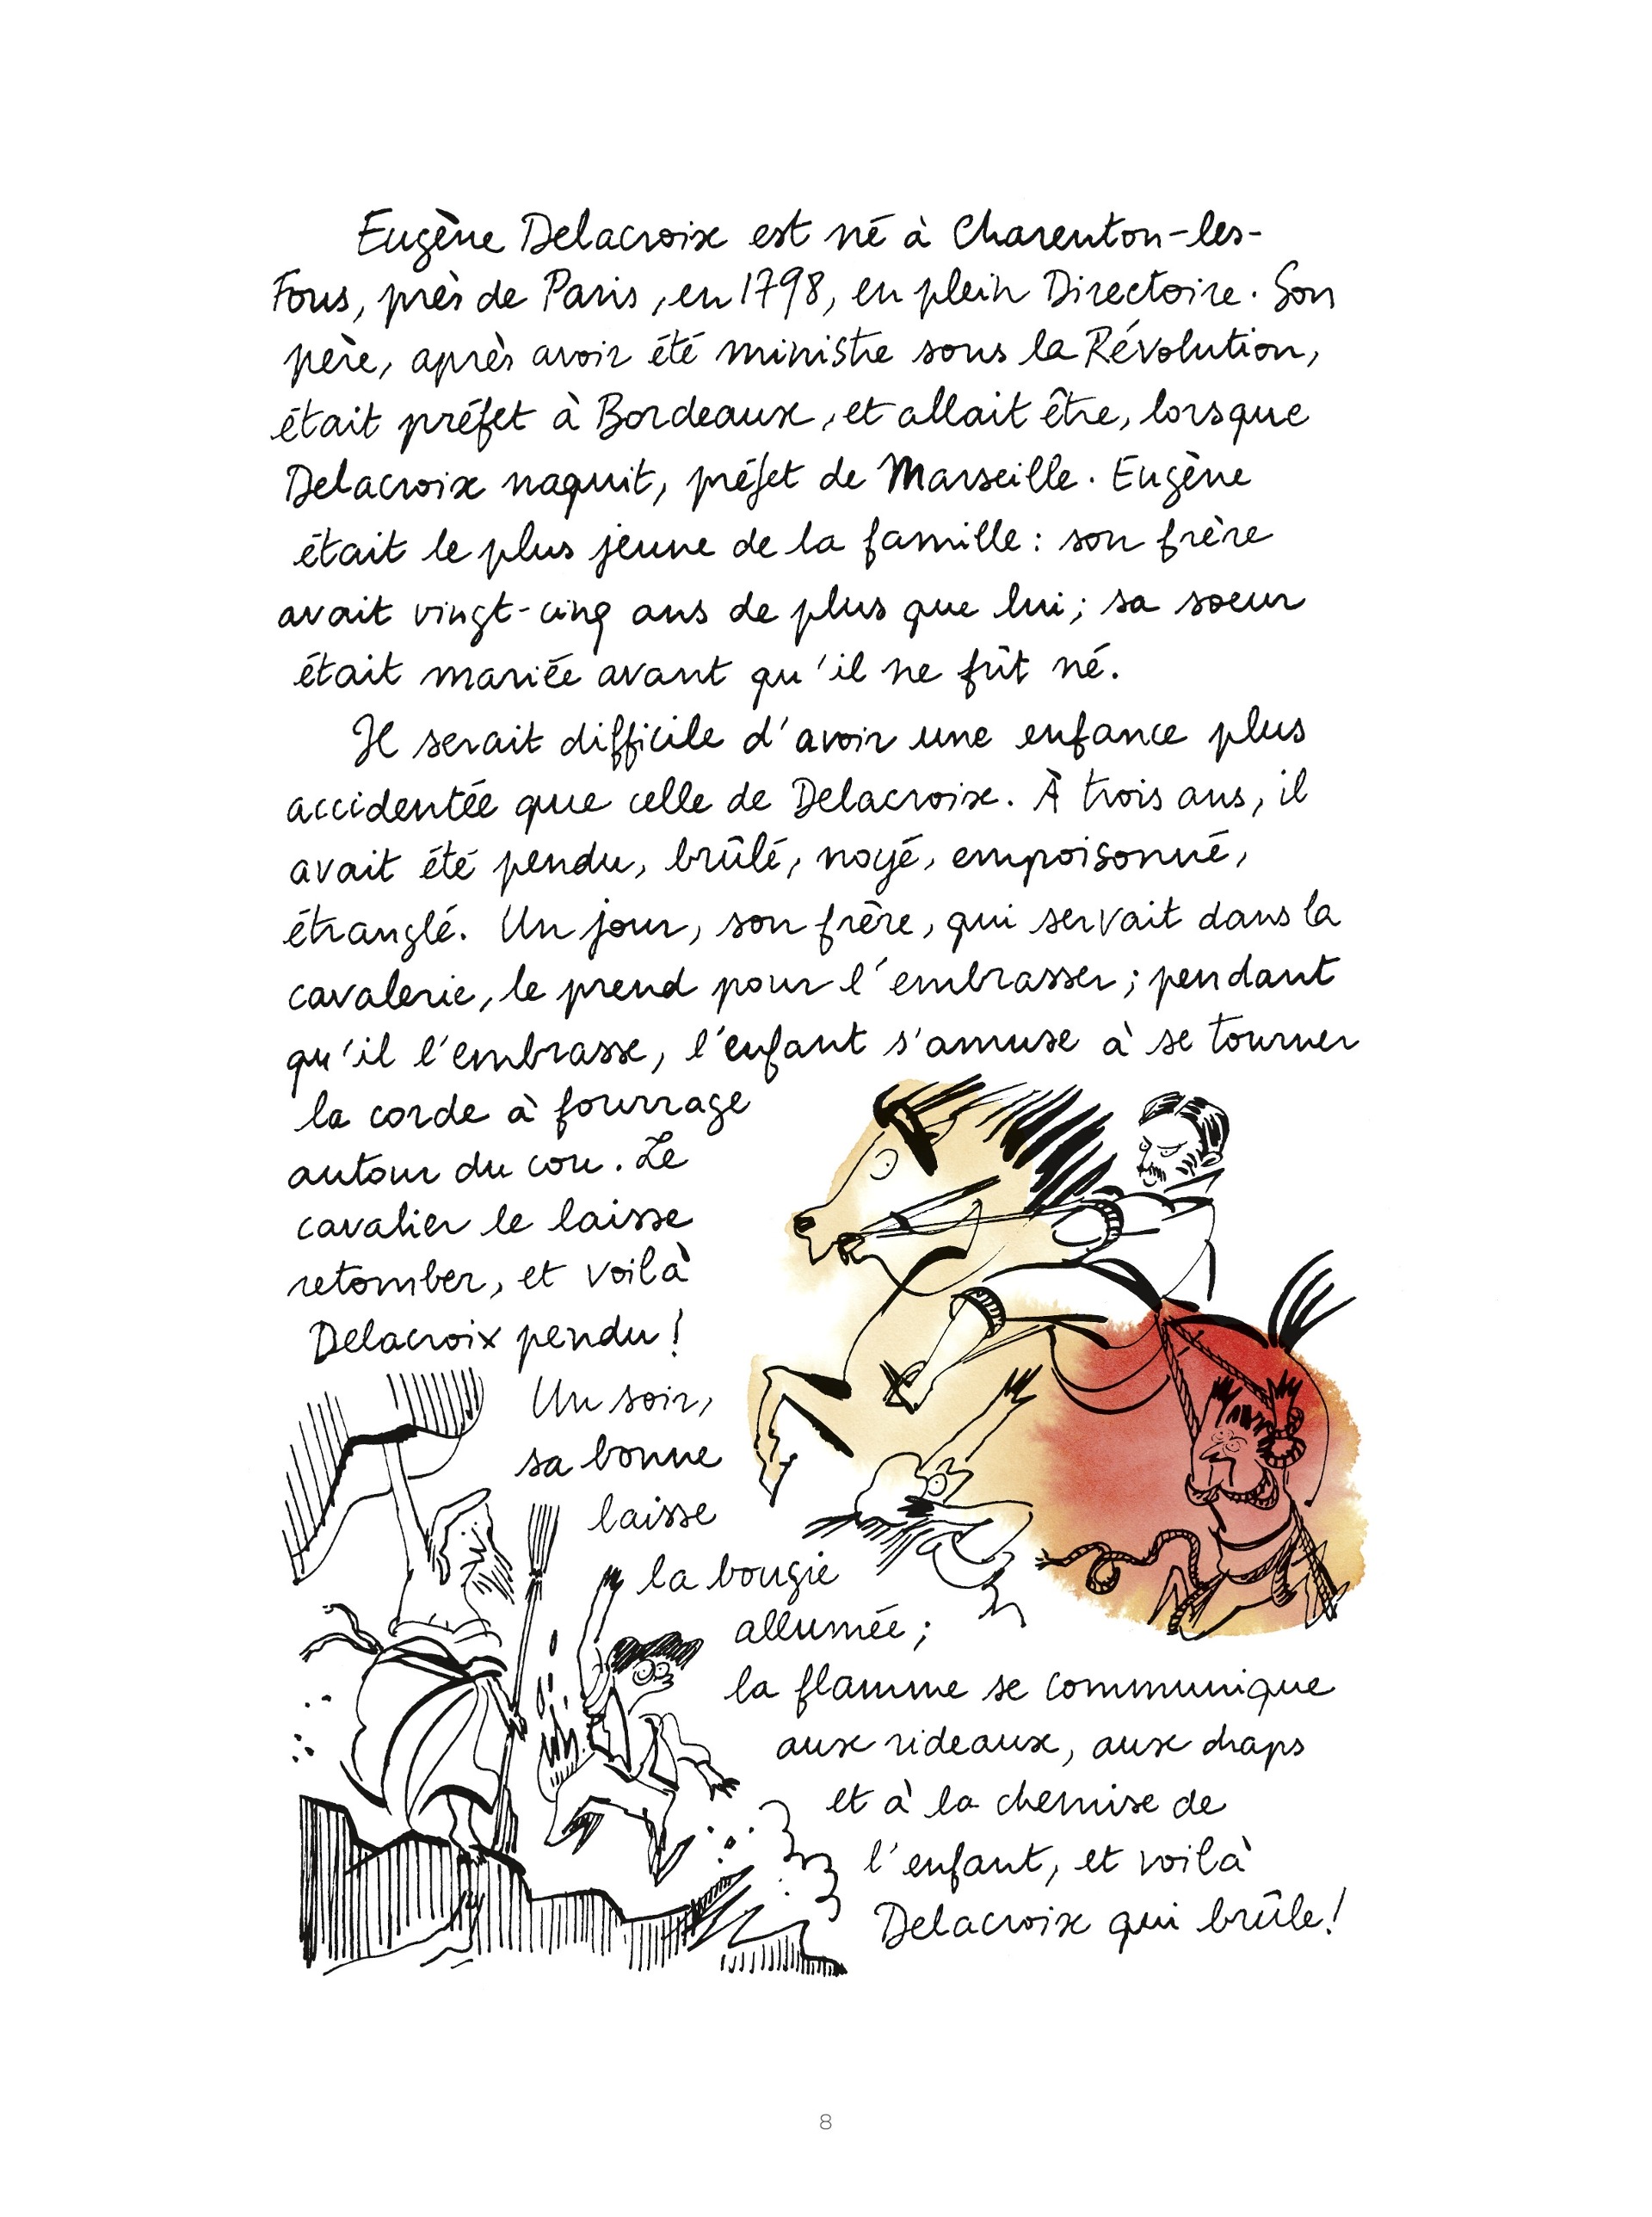 Eugène Delacroix est né à Charenton-les-
Fous, près de Paris, en 1798, en plein Directoire. Son
père, après avoir été ministre sous la Révolution,
était préfet à Bordeaux, et allait être, lorsque
Delacroix naquit, préfet de Marseille. Eugène
était le plus jeune de la famille : son frère
avait vingt-cinq ans de plus que lui ; sa soeur
était mariée avant qu'il ne fût né.
Il serait difficile d'avoir une enfance plus
accidentée que celle de Delacroix. À trois ans, il
avait été pendu, brûlé, noyé, empoisonné,
étranglé. Un jour, son frère, qui servait dans la
cavalerie, le prend pour l'embrasser ; pendant
qu'il l'embrasse, l'enfant s'amuse à se tourner
la corde à fourrage
autour du cou. Le
cavalier le laisse
retomber, et voilà
Delacroix pendu !
Un soir,
sa bonne
laisse
la bougie
allumée ;
la flamme se communique
aux rideaux, aux draps
et à la chemise de
l'enfant, et voilà
Delacroix qui brûle !
8